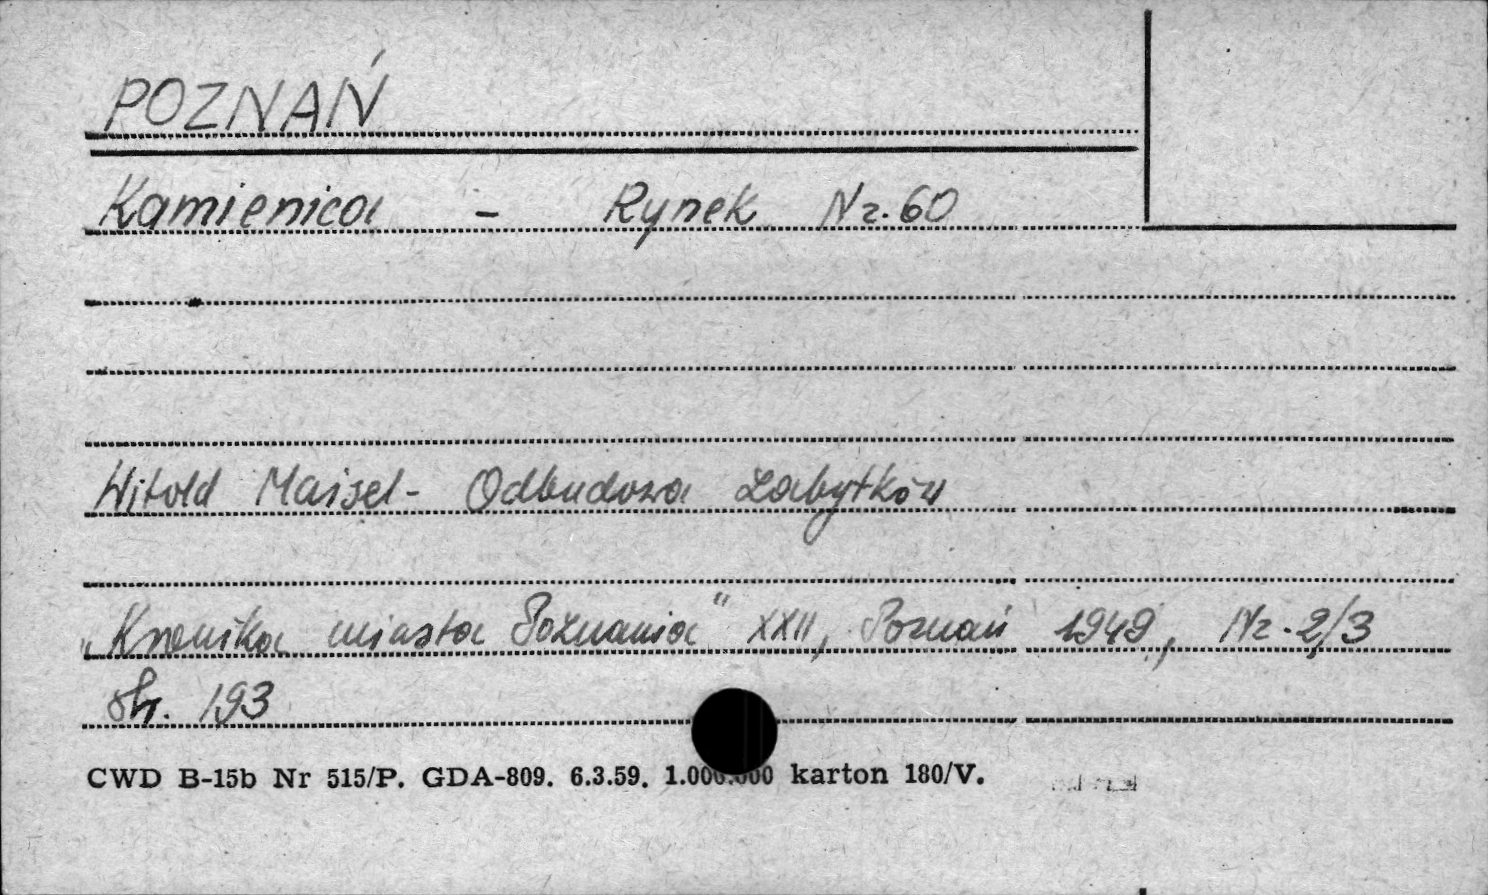 POZNAŃ
Kamienica - Rynek Nr. 60
Witold Maisel - Odbudowa zabytków
„Kronika miasta Poznania" XXII, Poznań 1949, Nr. 2/3
str. 193
CWD B-15b Nr 515/P. GDA-809. 6.3.59. 1.000.000 karton 180/V.